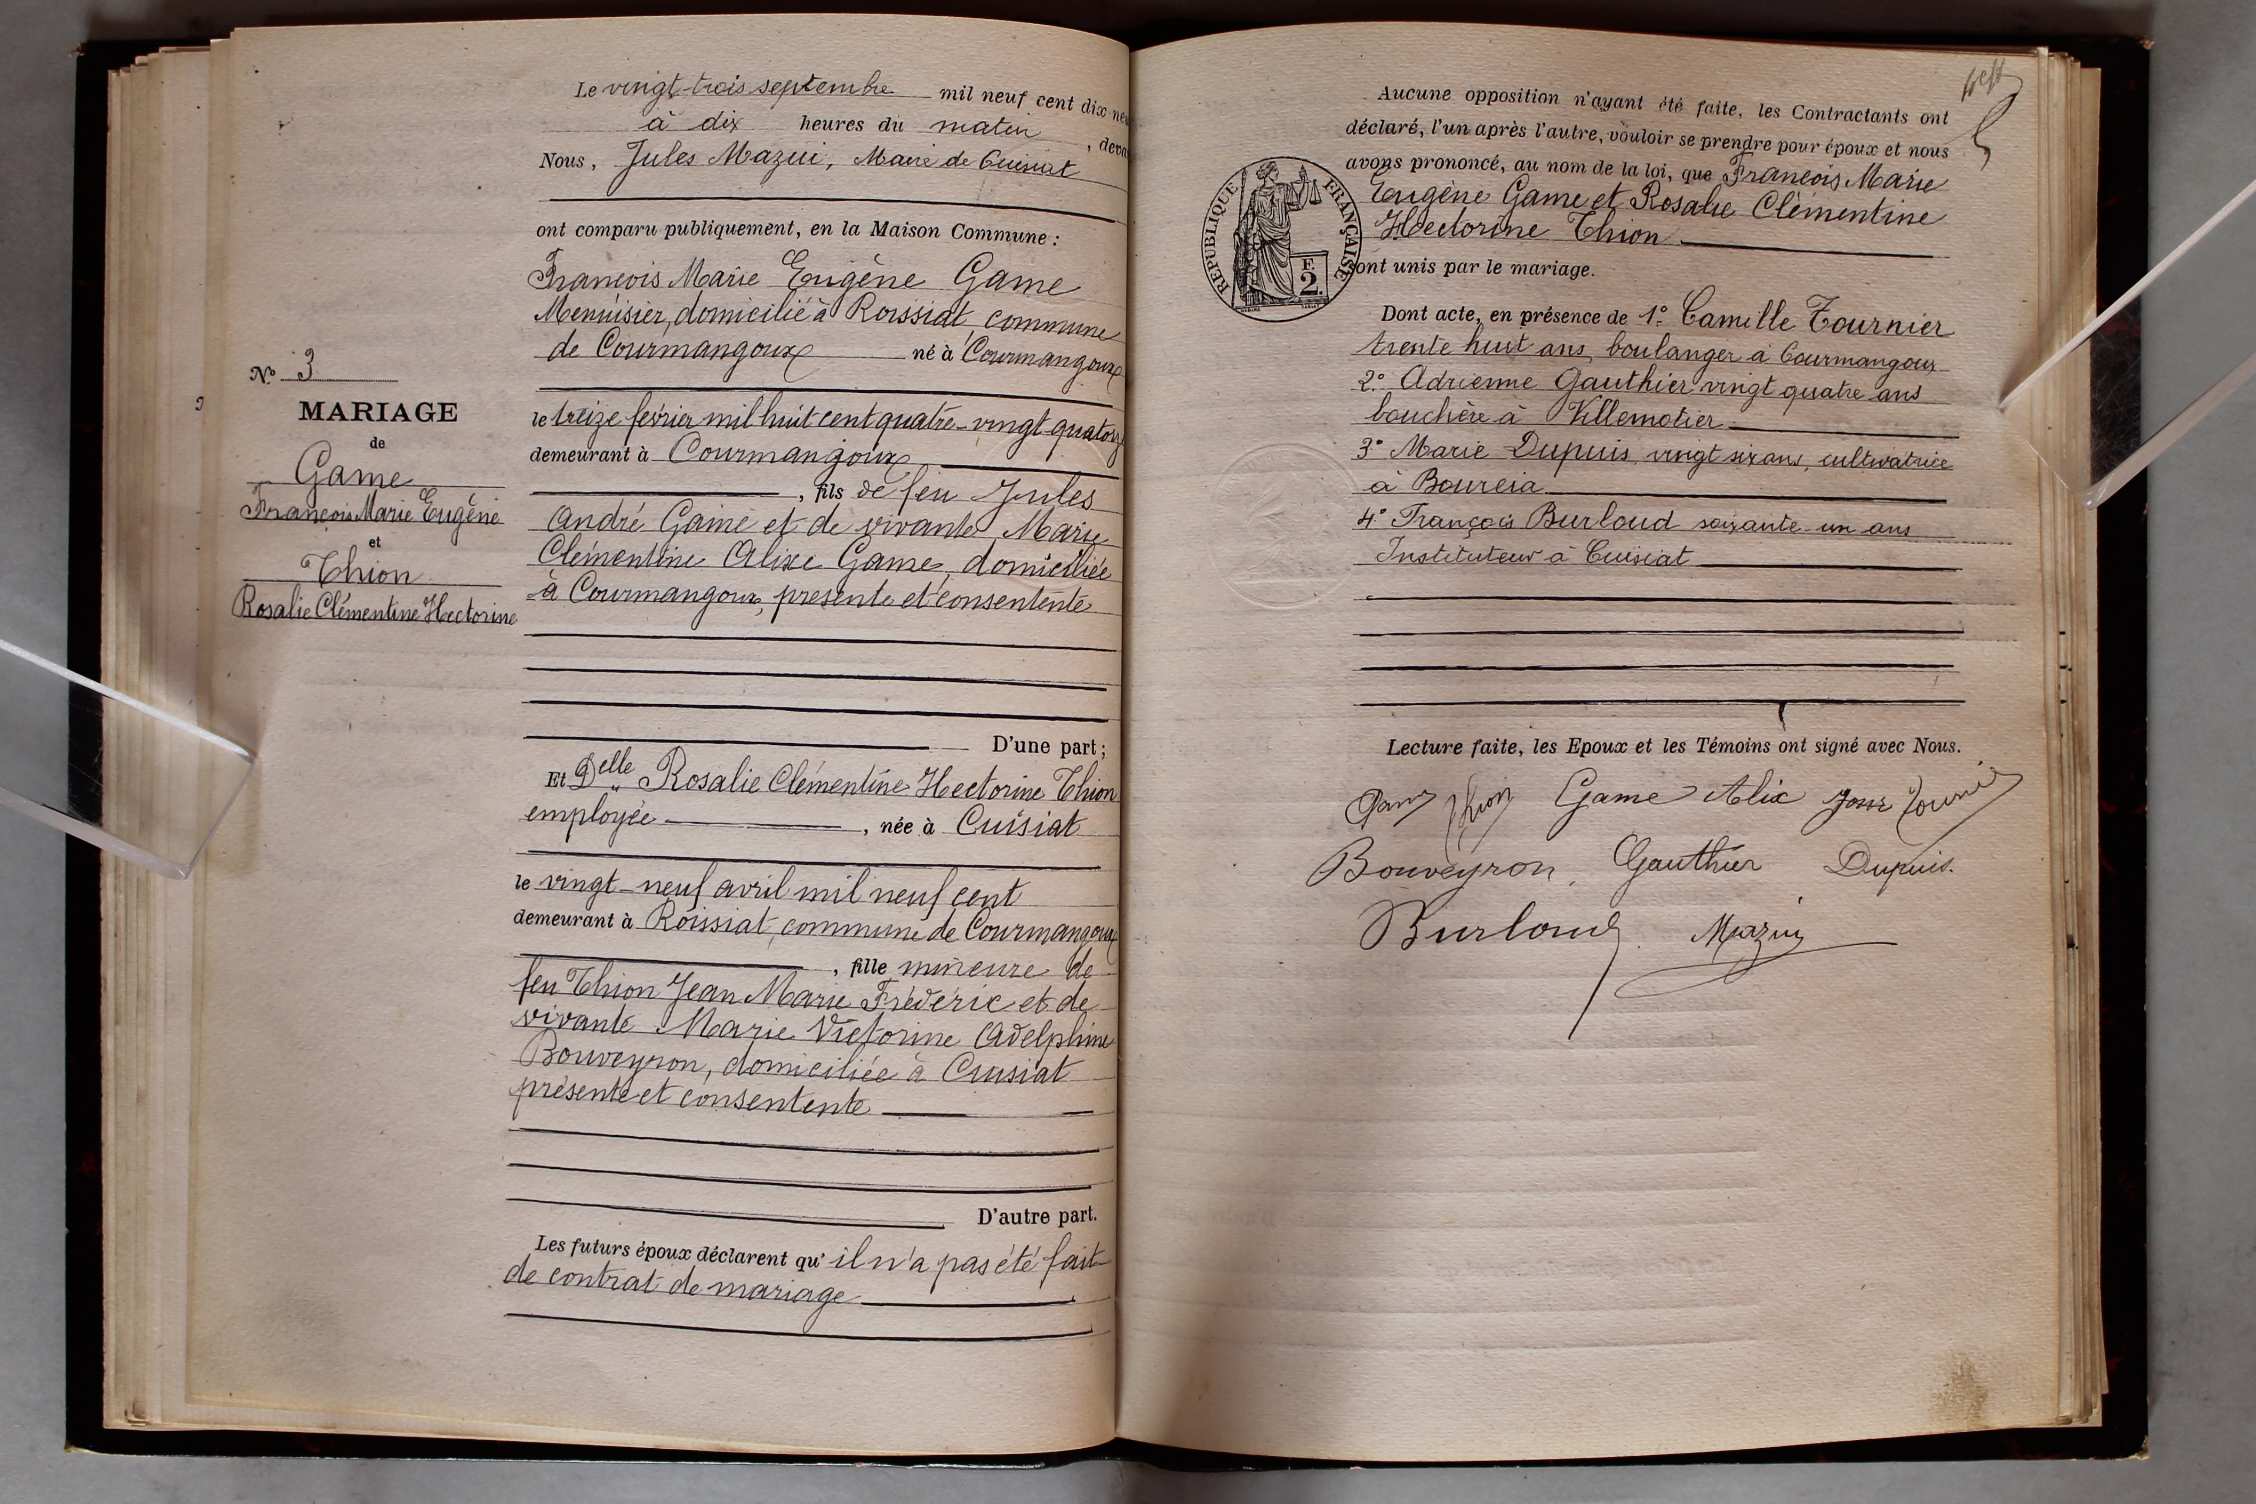 Le vingt-trois septembre mil neuf cent dix neu
à dix heures du matin, deva
Nous, Jules Mazui, Maire de Cuisiat
ont comparu publiquement, en la Maison Commune :
François Marie Eugène Game
Menuisier, domicilié à Roissiat, commune
de Courmangoux né à Courmangoux
le treize février mil huit cent quatre-vingt quatorze
demeurant à Courmangoux
, fils de feu Jules
André Game et de vivante Marie
Clémentine Alixe Game, domiciliée
à Courmangoux, présente et consentente
D'une part ;
Et Delle Rosalie Clémentine Hectorine Thion
employée, née à Cuisiat
le vingt-neuf avril mil neuf cent
demeurant à Roissiat, commune de Courmangoux
, fille mineure de
feu Thion Jean Marie Frédéric et de
vivante Marie Victorine Adelphine
Bouveyron, domiciliée à Cuisiat
présente et consentente
D'autre part.
Les futurs époux déclarent qu' il n'a pas été fait
de contrat de mariage
N° 3
MARIAGE
de
Game
François Marie Eugène
et
Thion
Rosalie Clémentine Hectorine
Aucune opposition n'ayant été faite, les Contractants ont
déclaré, l'un après l'autre, vouloir se prendre pour époux et nous
avons prononcé, au nom de la loi, que François Marie
Eugène Game et Rosalie Clémentine
Hectorine Thion
sont unis par le mariage.
REPUBLIQUE FRANÇAISE
F.
2.
Dont acte, en présence de 1° Camille Tournier
trente huit ans, boulanger à Courmangoux
2° Adrienne Gauthier vingt quatre ans
bouchère à Villemotier
3° Marie Dupuis, vingt six ans, cultivatrice
à Boureia
4° François Burloud soixante-un ans
Instituteur à Cuisiat
Lecture faite, les Epoux et les Témoins ont signé avec Nous.
Game Thion Game Alix Tournier
Bouveyron. Gauthier Dupuis.
Burloud Mazui